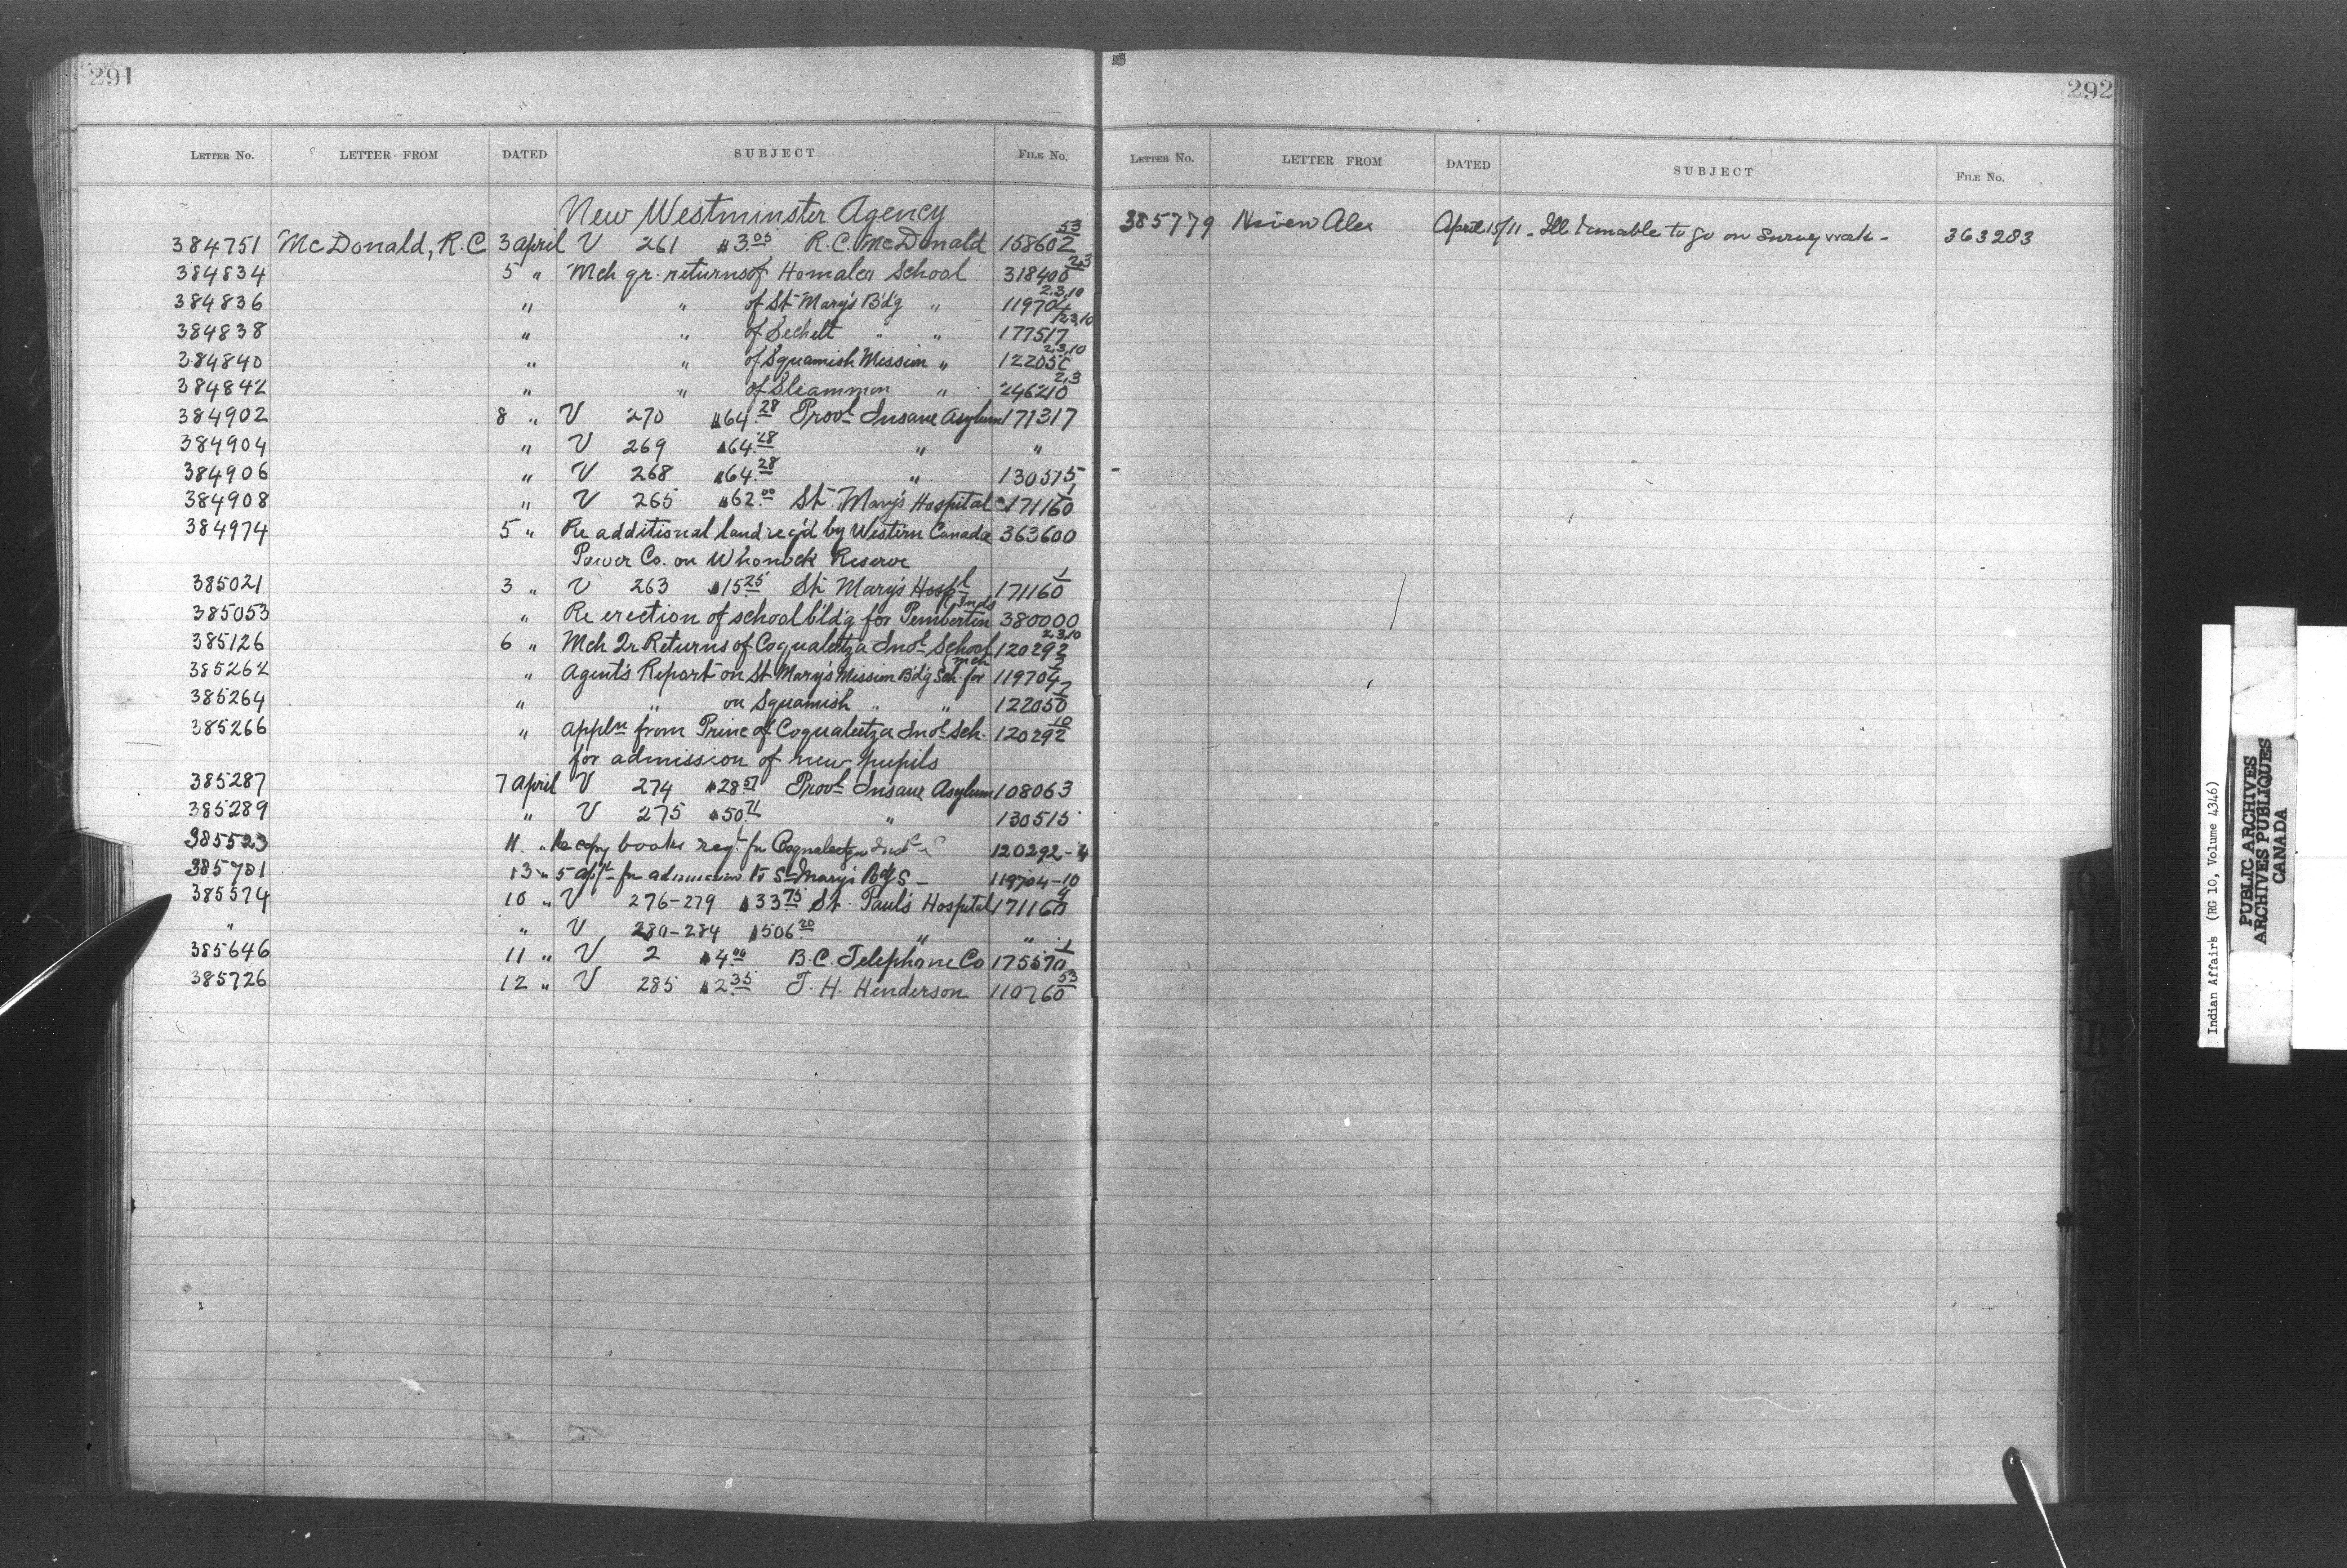 291
LETTER No. LETTER FROM DATED SUBJECT FILE No.
New Westminster Agency
384751 McDonald, R.C 3 April V 261 $3.05 R.C. McDonald 158602 53
384834 5 " Mch qr. returns of Homalco School 318400 2,3
384836 " " of St Mary's B'd'g " 119704 2,3,10
384838 " " of Sechelt " " 177517 /2,3,10
384840 " " of Squamish Mission " 122050 2,3,10
384842 " " of Sliammon " 246210 2,3
384902 8 " V 270 $64.28 Provl Insane Asylum 171317
384904 " V 269 $64.28 " "
384906 " V 268 $64.28 " 130515
384908 " V 265 $62.00 St. Mary's Hospital 171160 1
384974 5 " Re additional land req'd by Western Canada 363600
Power Co. on Whonock Reserve
385021 3 " V 263 $15.25 St Mary's Hospl 171160 1
385053 " Re erection of school bld'g for Pemberton Inds 380000
385126 6 " Mch Qr Returns of Coqualeetza Indl School 120292 2,3,10
385262 " Agent's Report on St Mary's Mission B'd'g Sch. for Mch 119704 2
385264 " " on Squamish " " 122050 2
385266 " Appln from Princ of Coqualeetza Indl Sch. 120292 10
for admission of new pupils
385287 7 April V 274 $28.57 Provl Insane Asylum 108063
385289 " V 275 $50.71 " 130515
385523 11 " Re copy books req. for Coqualeetza Indl S 120292-4
385701 13 " 5 appln for admission to St Mary's Bdg S - 119704-10
385574 10 " V 276-279 $33.75 St. Paul's Hospital 171160 4
" " V 280-284 $506.20 " "
385646 11 " V 2 $4.00 B.C. Telephone Co 175570 1
385726 12 " V 285 $2.35 T. H. Henderson 110760 53
292
LETTER No. LETTER FROM DATED SUBJECT FILE No.
385779 Niven Alex April 15/11 - Ill & unable to go on survey work - 363283
Indian Affairs (RG 10, Volume 4346)
PUBLIC ARCHIVES
ARCHIVES PUBLIQUES
CANADA